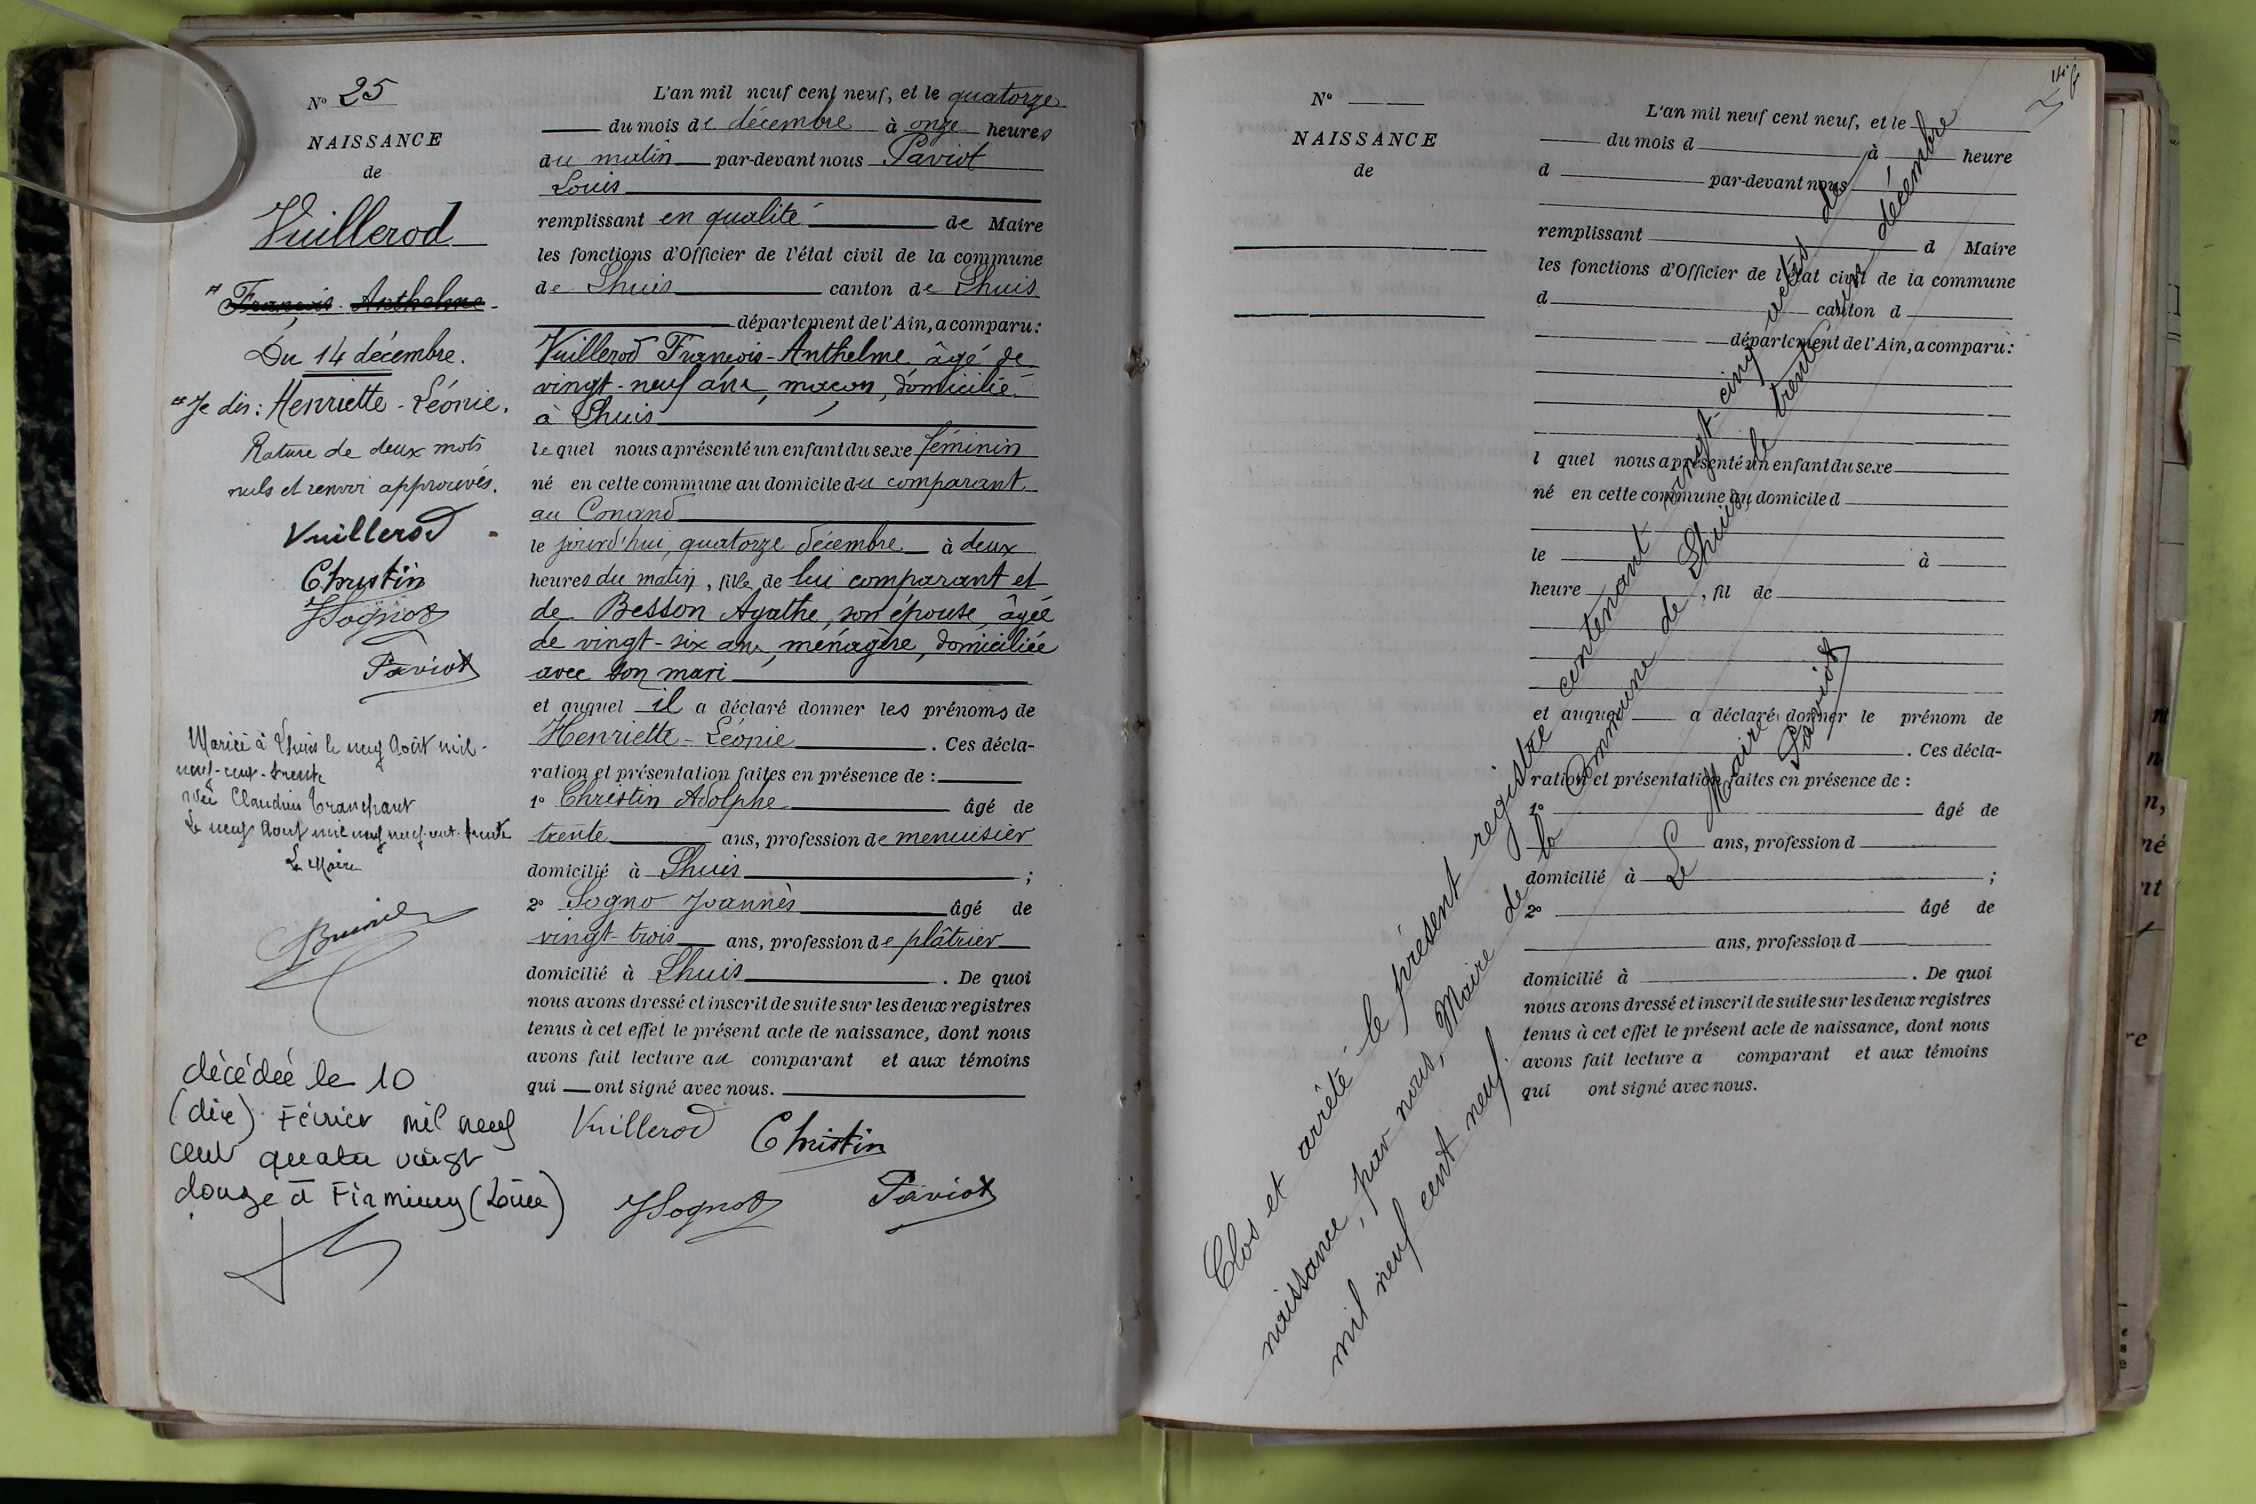 N° 25
NAISSANCE
de
Vuillerod
# François - Anthelme -
Du 14 décembre.
# Je dis : Henriette - Léonie.
Rature de deux mots
nuls et renvoi approuvés.
Vuillerod
Christin
JSogno
Paviot
Mariée à Lhuis le neuf Août mil-
neuf-cent-trente
avec Claudius Tranchant
Le neuf Août mil neuf neuf-cent-trente
Le Maire
décédée le 10
(dix) Février mil neuf
cent quatre vingt
douze à Firminy (Loire)
L'an mil neuf cent neuf, et le quatorze
du mois de décembre à onze heures
du matin par-devant nous Paviot
Louis
remplissant en qualité de Maire
les fonctions d'Officier de l'état civil de la commune
de Lhuis canton de Lhuis
département de l'Ain, a comparu :
Vuillerod François-Anthelme âgé de
vingt-neuf ans, maçon, domicilié
à Lhuis
lequel nous a présenté un enfant du sexe féminin
né en cette commune au domicile du comparant
au Conand
le jourd'hui, quatorze décembre à deux
heures du matin, fille de lui comparant et
de Besson Agathe, son épouse, âgée
de vingt-six ans, ménagère, domiciliée
avec son mari
et auquel il a déclaré donner les prénoms de
Henriette - Léonie . Ces décla-
ration et présentation faites en présence de :
1° Christin Adolphe âgé de
trente ans, profession de menuisier
domicilié à Lhuis ;
2° Sogno Joannès âgé de
vingt-trois ans, profession de plâtrier
domicilié à Lhuis . De quoi
nous avons dressé et inscrit de suite sur les deux registres
tenus à cet effet le présent acte de naissance, dont nous
avons fait lecture au comparant et aux témoins
qui ont signé avec nous.
Vuillerod Christin
JSogno Paviot
N°
NAISSANCE
de
L'an mil neuf cent neuf, et le
du mois d à heure
d par-devant nous
remplissant d Maire
les fonctions d'Officier de l'état civil de la commune
d canton d
département de l'Ain, a comparu :
l quel nous a présenté un enfant du sexe
né en cette commune au domicile d
le à
heure , fil de
et auquel a déclaré donner le prénom de
. Ces décla-
ration et présentation faites en présence de :
1° âgé de
ans, profession d
domicilié à ;
2° âgé de
ans, profession d
domicilié à . De quoi
nous avons dressé et inscrit de suite sur les deux registres
tenus à cet effet le présent acte de naissance, dont nous
avons fait lecture a comparant et aux témoins
qui ont signé avec nous.
Clos et arrêté le présent registre contenant vingt-cinq actes de
naissance, par nous, Maire de la Commune de Lhuis, le trente un décembre
mil neuf cent neuf.
Le Maire
Paviot